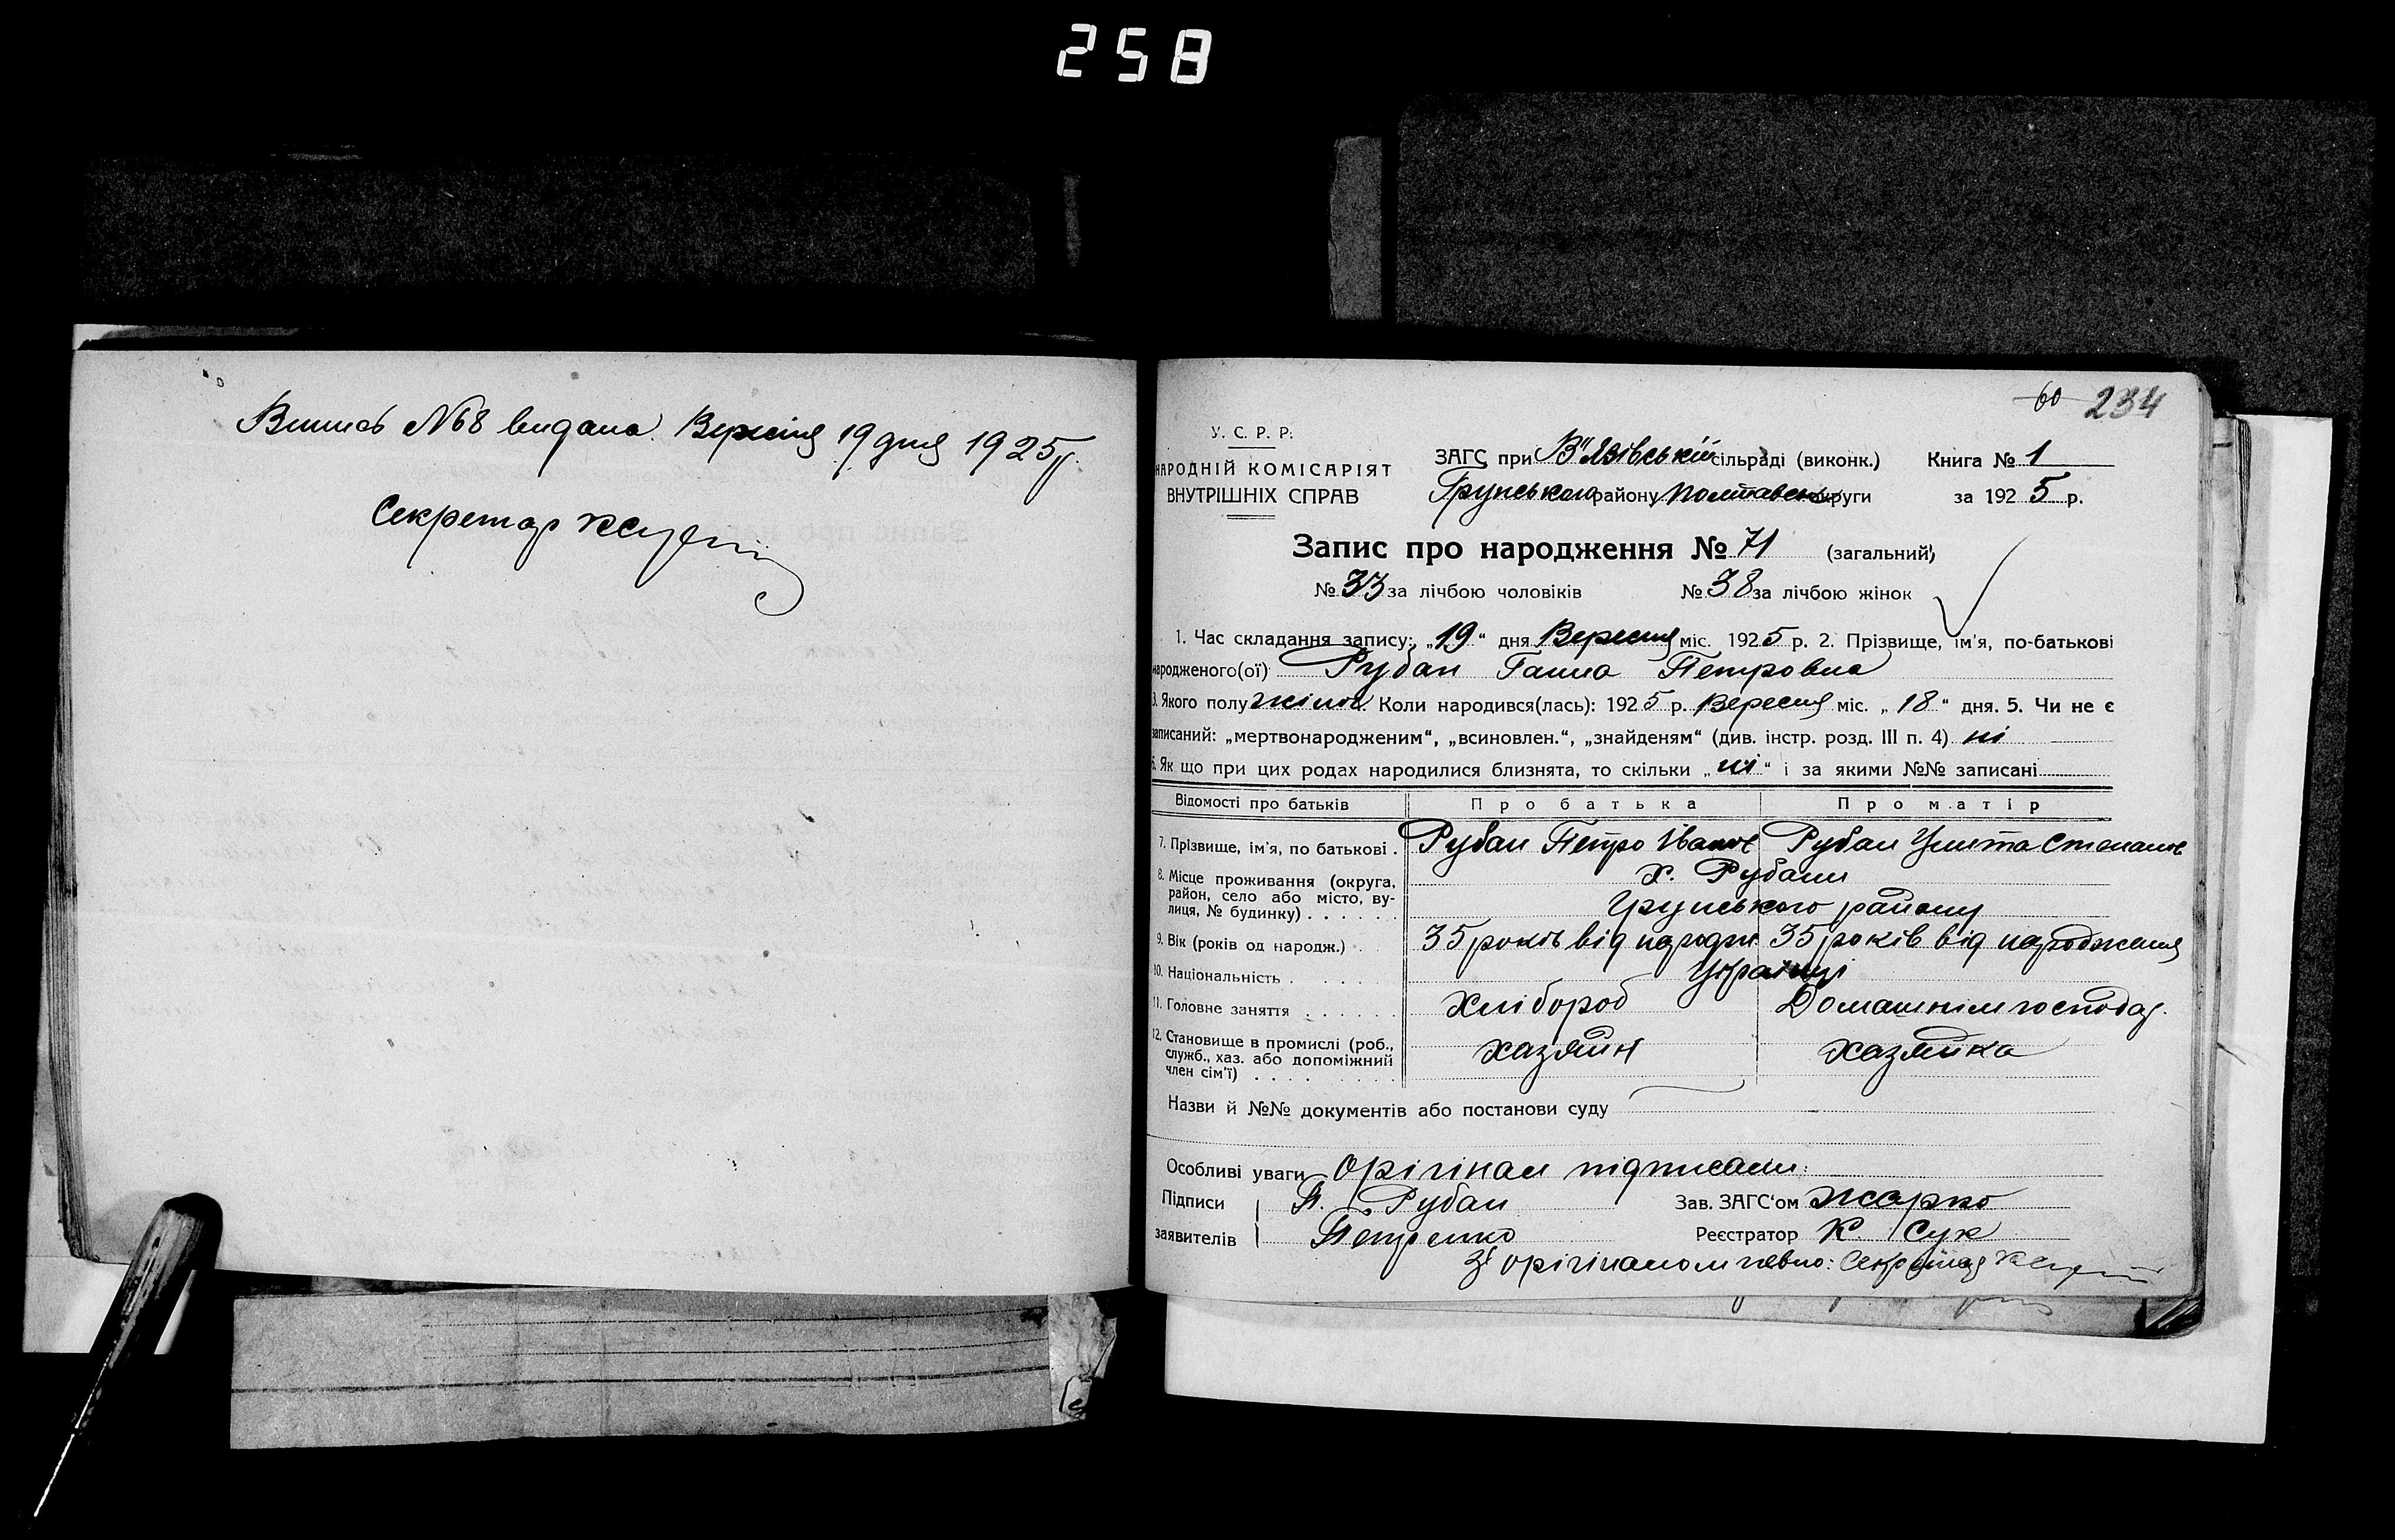 258
Випись №68 видана. Вересня 19 дня 1925 р.
Секретар
60 234
У. С. Р. Р.
НАРОДНІЙ КОМІСАРІЯТ
ВНУТРІШНІХ СПРАВ
ЗАГС при В'язівській сільраді (виконк.) Книга № 1
Грунського району Полтавської округи за 1925 р.
Запис про народження № 71 (загальний)
№ 33 за лічбою чоловіків № 38 за лічбою жінок
1. Час складання запису: „19“ дня Вересня міс. 1925 р. 2. Прізвище, ім'я, по-батькові
народженого(ої) Рубан Ганна Петровна
3. Якого полу жіноч. Коли народився(лась): 1925 р. Вересня міс. „18“ дня. 5. Чи не є
записаний: „мертвонародженим“, „всиновлен.“, „знайденям“ (див. інстр. розд. III п. 4) ні
6. Як що при цих родах народилися близнята, то скільки „ні“ і за якими №№ записані
Відомості про батьків Про батька Про матір
7. Прізвище, ім'я, по батькові . Рубан Петро Іванов Рубан Улита Степанов
8. Місце проживання (округа,
район, село або місто, ву-
лиця, № будинку) . . . . . .
х. Рубани
Грунського району
9. Вік (років од народж.) 35 років від народж 35 років від народження
10. Національність . . . . . Українці
11. Головне заняття . . . . . . Хлібороб Домашнім господар.
12. Становище в промислі (роб.,
служб., хаз. або допоміжний
член сім'ї) . . . . . . . .
хазяїин хазяйка
Назви й №№ документів або постанови суду
Особливі уваги Орігінал підписали:
Підписи П. Рубан Зав. ЗАГС'ом Жарко
заявителів Петренко Реєстратор К. Сук
Зі орігіналом певно: Секретар